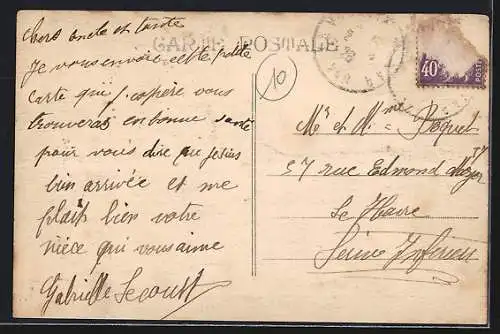 chers oncle et tante
CARTE POSTALE
Je vous envoie cette petite
carte qui j'espère vous
trouveras en bonne santé
pour vous dire que je suis
bien arrivée et me
plait bien votre
nièce qui vous aime
Gabrielle Lecoutt
10
40
POSTES
Mr et Mme Poquet
57 rue Edmond
Le Havre
Seine Inférieure